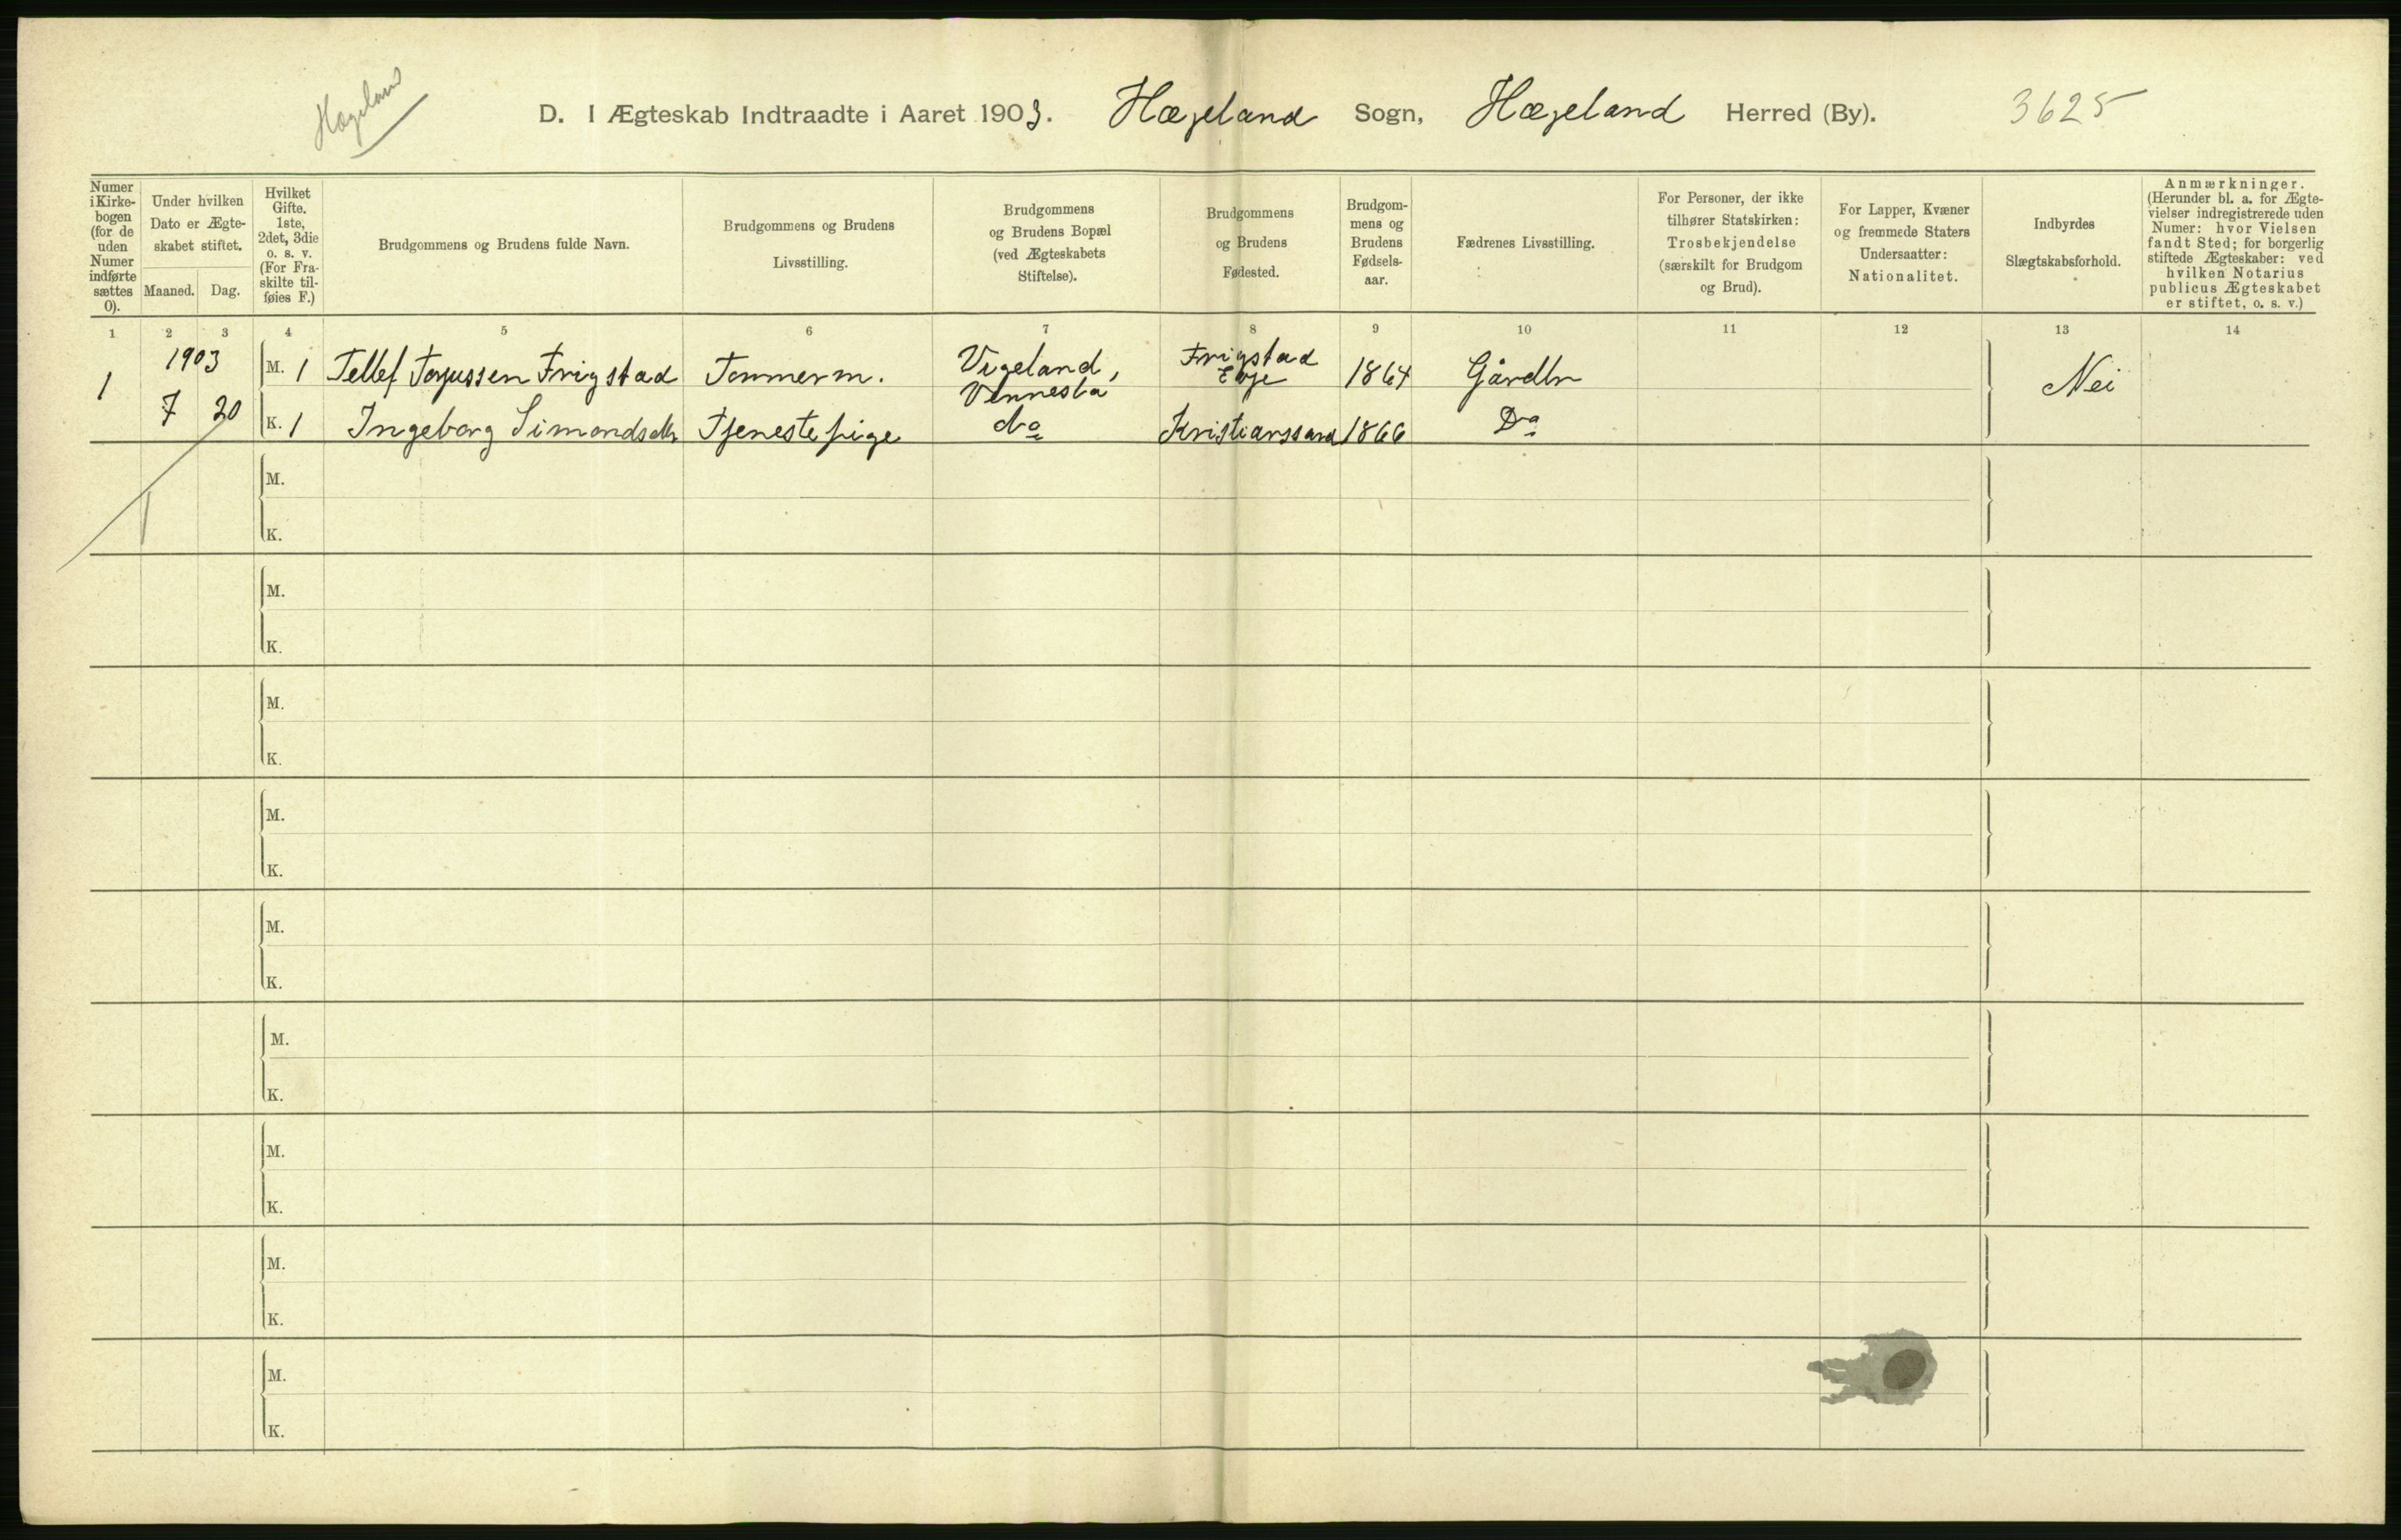 Hægeland
D. I Ægteskab Indtraadte i Aaret 1903. Hægeland Sogn, Hægeland Herred (By). 3625
Numer i Kirke-bogen (for de uden Numer indførte sættes 0).
Under hvilken Dato er Ægte-skabet stiftet.
Maaned. Dag.
Hvilket Gifte. 1ste, 2det, 3die o. s. v. (For Fra-skilte til-føies F.)
Brudgommens og Brudens fulde Navn.
Brudgommens og Brudens Livsstilling.
Brudgommens og Brudens Bopæl (ved Ægteskabets Stiftelse).
Brudgommens og Brudens Fødested.
Brudgom-mens og Brudens Fødsels-aar.
Fædrenes Livsstilling.
For Personer, der ikke tilhører Statskirken: Trosbekjendelse (særskilt for Brudgom og Brud).
For Lapper, Kvæner og fremmede Staters Undersaatter: Nationalitet.
Indbyrdes Slægtskabsforhold.
Anmærkninger. (Herunder bl. a. for Ægte-vielser indregistrerede uden Numer: hvor Vielsen fandt Sted; for borgerlig stiftede Ægteskaber: ved hvilken Notarius publicus Ægteskabet er stiftet, o. s. v.)
1 2 3 4 5 6 7 8 9 10 11 12 13 14
1903
1 7 20
M. 1 Tellef Torjussen Frigstad Tømmerm. Vigeland, Vennesla Frigstad Evje 1864 Gårdbr Nei
K. 1 Ingeborg Simondsdtr Tjenestepige do Kristianssand 1866 Do
M.
K.
M.
K.
M.
K.
M.
K.
M.
K.
M.
K.
M.
K.
M.
K.
M.
K.